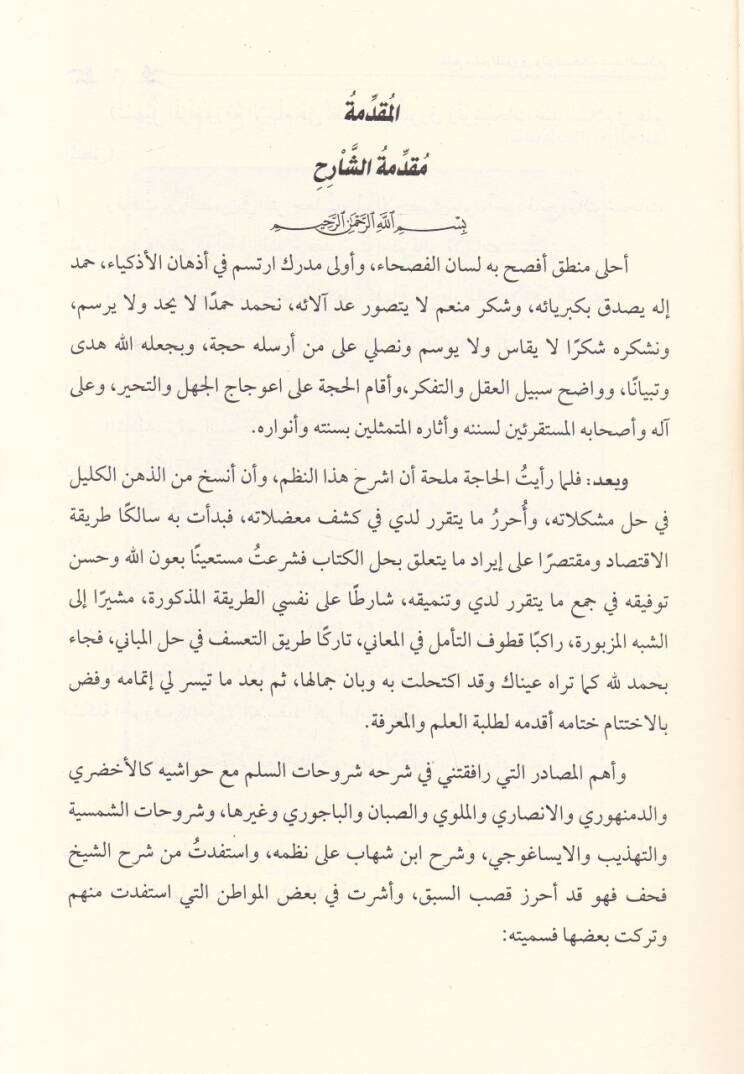 المُقدِّمةُ
مُقدِّمةُ الشَّارِحِ
بِسْمِ اللَّهِ الرَّحْمَنِ الرَّحِيمِ
أحلى منطق أفصح به لسان الفصحاء، وأولى مدرك ارتسم في أذهان الأذكياء، حمد
إله يصدق بكبريائه، وشكر منعم لا يتصور عد آلائه، نحمد حمدًا لا يحد ولا يرسم،
ونشكره شكرًا لا يقاس ولا يوسم ونصلي على من أرسله حجة، وبجعله الله هدى
وتبيانًا، وواضح سبيل العقل والتفكر،وأقام الحجة على اعوجاج الجهل والتحير، وعلى
آله وأصحابه المستقرئين لسننه وأثاره المتمثلين بسنته وأنواره.
وبعد: فلما رأيتُ الحاجة ملحة أن اشرح هذا النظم، وأن أنسخ من الذهن الكليل
في حل مشكلاته، وأُحررُ ما يتقرر لدي في كشف معضلاته، فبدأت به سالكًا طريقة
الاقتصاد ومقتصرًا على إيراد ما يتعلق بحل الكتاب فشرعتُ مستعينًا بعون الله وحسن
توفيقه في جمع ما يتقرر لدي وتنميقه، شارطًا على نفسي الطريقة المذكورة، مشيرًا إلى
الشبه المزبورة، راكبًا قطوف التأمل في المعاني، تاركًا طريق التعسف في حل المباني، فجاء
بحمد لله كما تراه عيناك وقد اكتحلت به وبان جمالها، ثم بعد ما تيسر لي إتمامه وفض
بالاختتام ختامه أقدمه لطلبة العلم والمعرفة.
وأهم المصادر التي رافقتني في شرحه شروحات السلم مع حواشيه كالأخضري
والدمنهوري والانصاري والملوي والصبان والباجوري وغيرها، وشروحات الشمسية
والتهذيب والايساغوجي، وشرح ابن شهاب على نظمه، واستفدتُ من شرح الشيخ
فحف فهو قد أحرز قصب السبق، وأشرت في بعض المواطن التي استفدت منهم
وتركت بعضها فسميته: